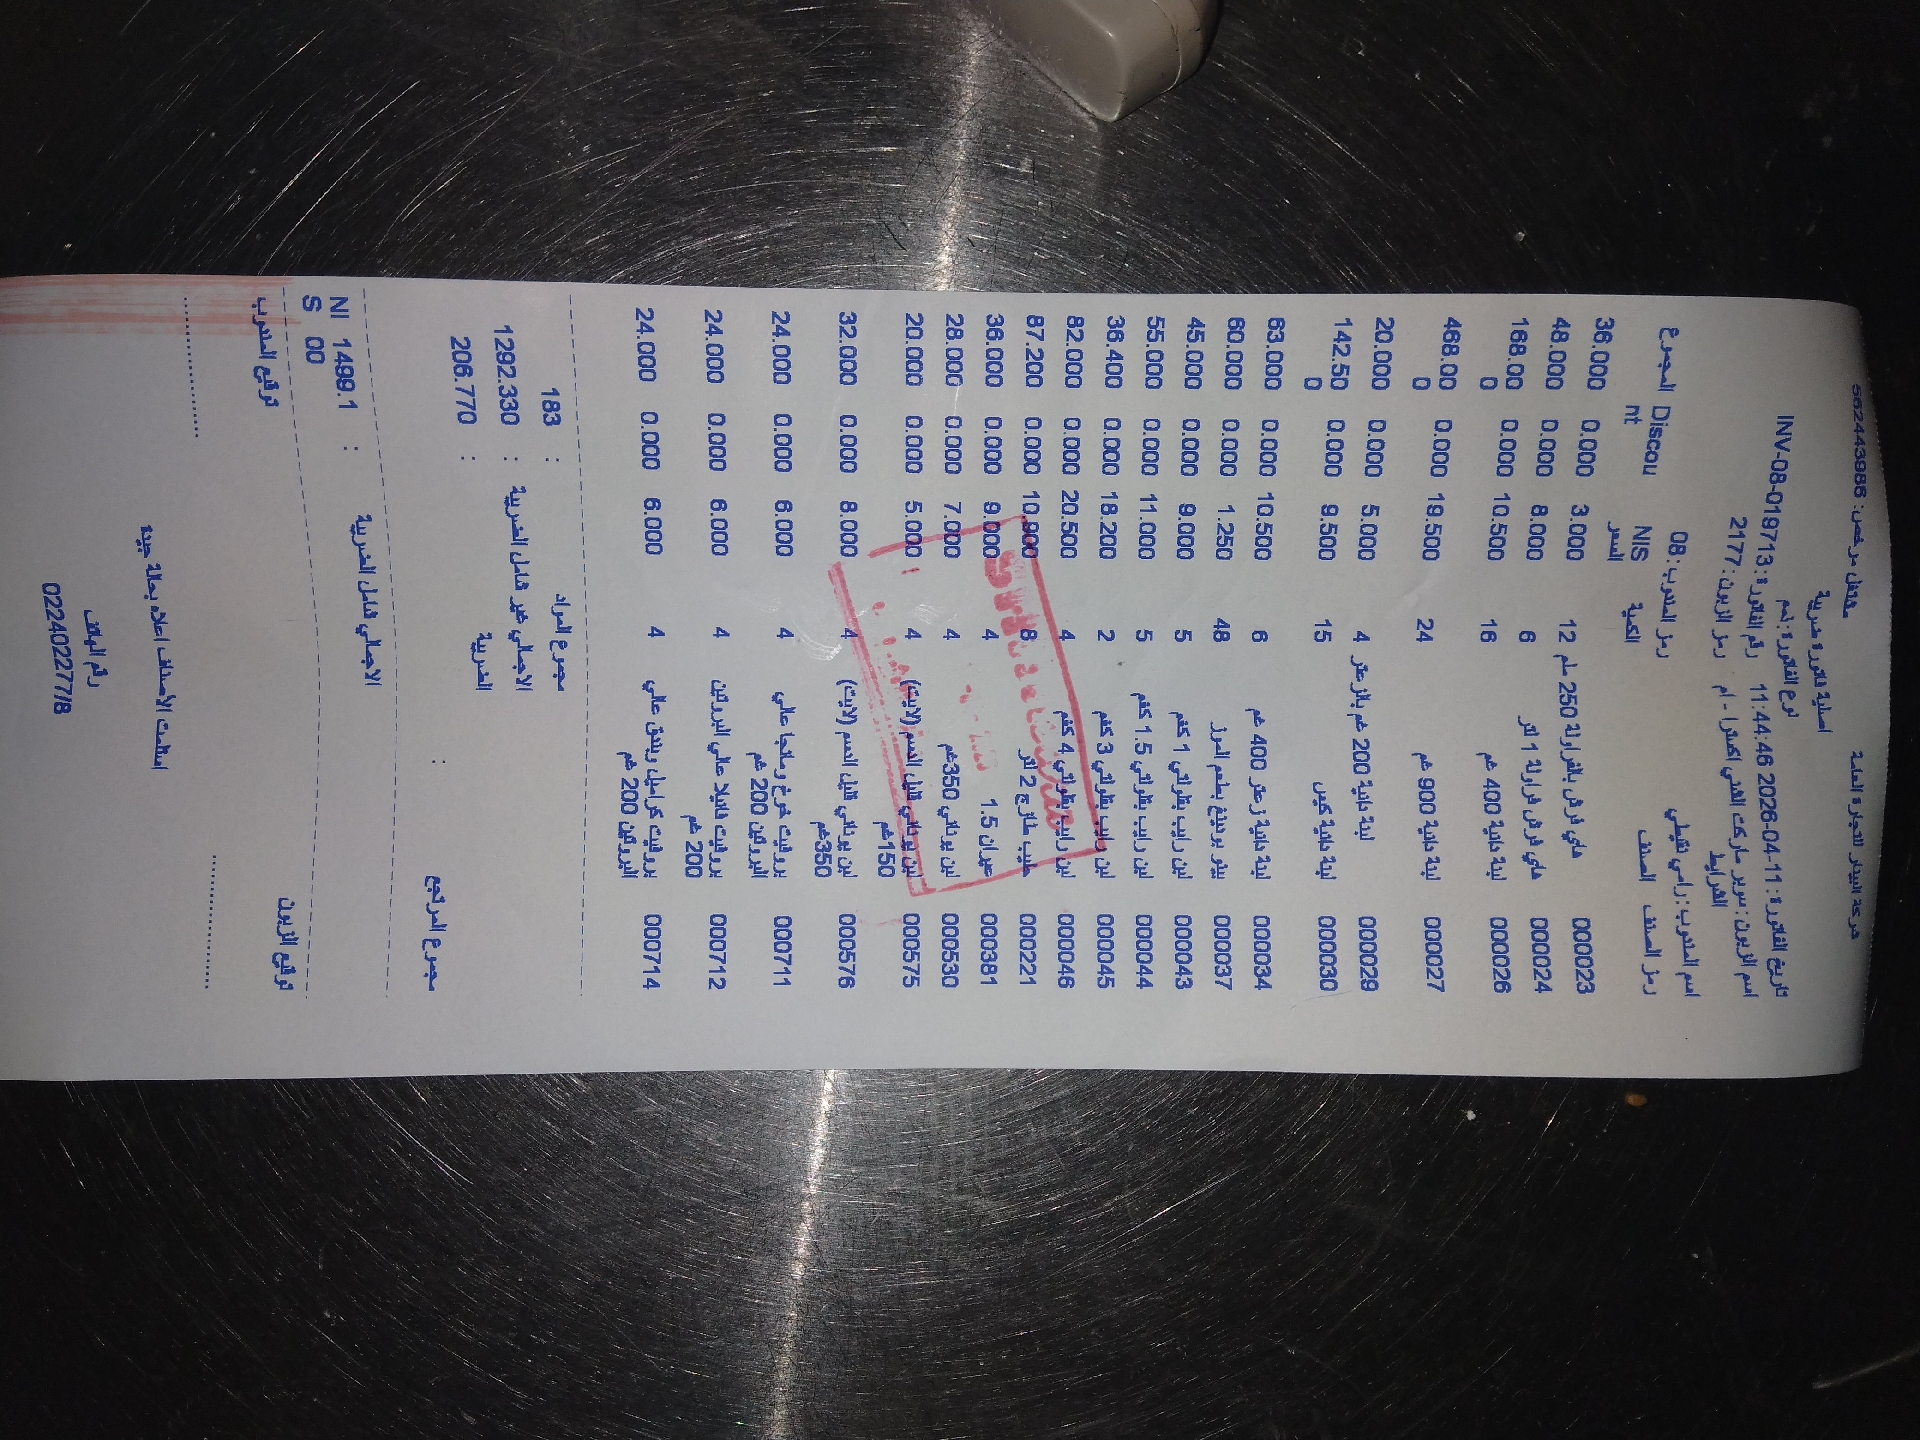 شركة البيدار للتجارة العامة
مشتغل مرخص: 562443986
اصلية فاتورة ضريبية
نوع الفاتورة: ذمم
تاريخ الفاتورة: 2026-04-11 11:44:46 رقم الفاتورة: INV-08-019713
اسم الزبون: سوبر ماركت الغني اكسترا - ام الشرايط رمز الزبون: 2177
اسم المندوب: رامي نخيلي رمز المندوب: 08
رمز الصنف الصنف الكمية السعر NIS Discount المجموع
000023 هاي فرش بالفراولة 250 ملم 12 3.000 0.000 36.000
000024 هاي فرش فراولة 1 لتر 6 8.000 0.000 48.000
000026 لبنة دانية 400 غم 16 10.500 0.000 168.000
000027 لبنة دانية 900 غم 24 19.500 0.000 468.000
000029 لبنة دانية 200 غم بالزعتر 4 5.000 0.000 20.000
000030 لبنة دانية كيس 15 9.500 0.000 142.500
000034 لبنة دانية زعتر 400 غم 6 10.500 0.000 63.000
000037 بينو بودينغ بطعم الموز 48 1.250 0.000 60.000
000043 لبن رايب بقلولتي 1 كغم 5 9.000 0.000 45.000
000044 لبن رايب بقلولتي 1.5 كغم 5 11.000 0.000 55.000
000045 لبن رايب بقلولتي 3 كغم 2 18.200 0.000 36.400
000046 لبن رايب بقلولتي 4 كغم 4 20.500 0.000 82.000
000221 حليب طازج 2 لتر 8 10.900 0.000 87.200
000381 عيران 1.5 4 9.000 0.000 36.000
000530 لبن يوناني 350غم 4 7.000 0.000 28.000
000575 لبن يوناني قليل الدسم (لايت) 150غم 4 5.000 0.000 20.000
000576 لبن يوناني قليل الدسم (لايت) 350غم 4 8.000 0.000 32.000
000711 بروفيت خوخ ومانجا عالي البروتين 200 غم 4 6.000 0.000 24.000
000712 بروفيت فانيلا عالي البروتين 200 غم 4 6.000 0.000 24.000
000714 بروفيت كراميل وبندق عالي البروتين 200 غم 4 6.000 0.000 24.000
مجموع المواد : 183
الاجمالي غير شامل الضريبة : 1292.330
الضريبة : 206.770
مجموع المرتجع :
الاجمالي شامل الضريبة : 1499.100 NIS
توقيع الزبون توقيع المندوب
استلمت الأصناف اعلاه بحالة جيدة
رقم الهاتف
022402277/8